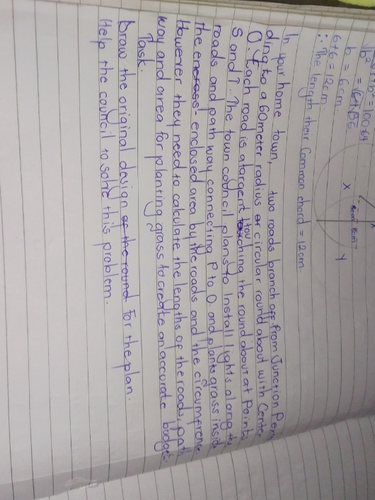 b² = 100-64
b = 6cm
6+6 = 12cm
∴ The length their Common chord = 12cm
X
Y
In your home town, two roads branch off from Junction P en
ding to a 60meter radius or circular round about with Center
O. Each road is a targent touching the round about at Points
S and T. The town council plans to install lights along the
roads and path way connecting P to O and plants grass inside
the enclosed area by the roads and the circumference
However they need to calculate the lengths of the roads, path
way and area for planting grass to create an accurate budget
Task.
Draw the original design of the round For the plan.
Help the council to solve this problem.